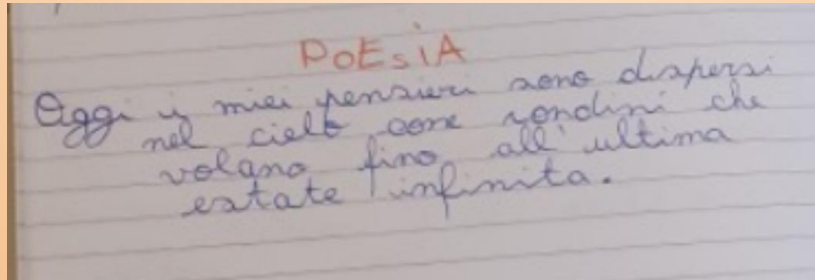 POESIA
Oggi i miei pensieri sono dispersi
nel cielo come rondini che
volano fino all'ultima
estate infinita.